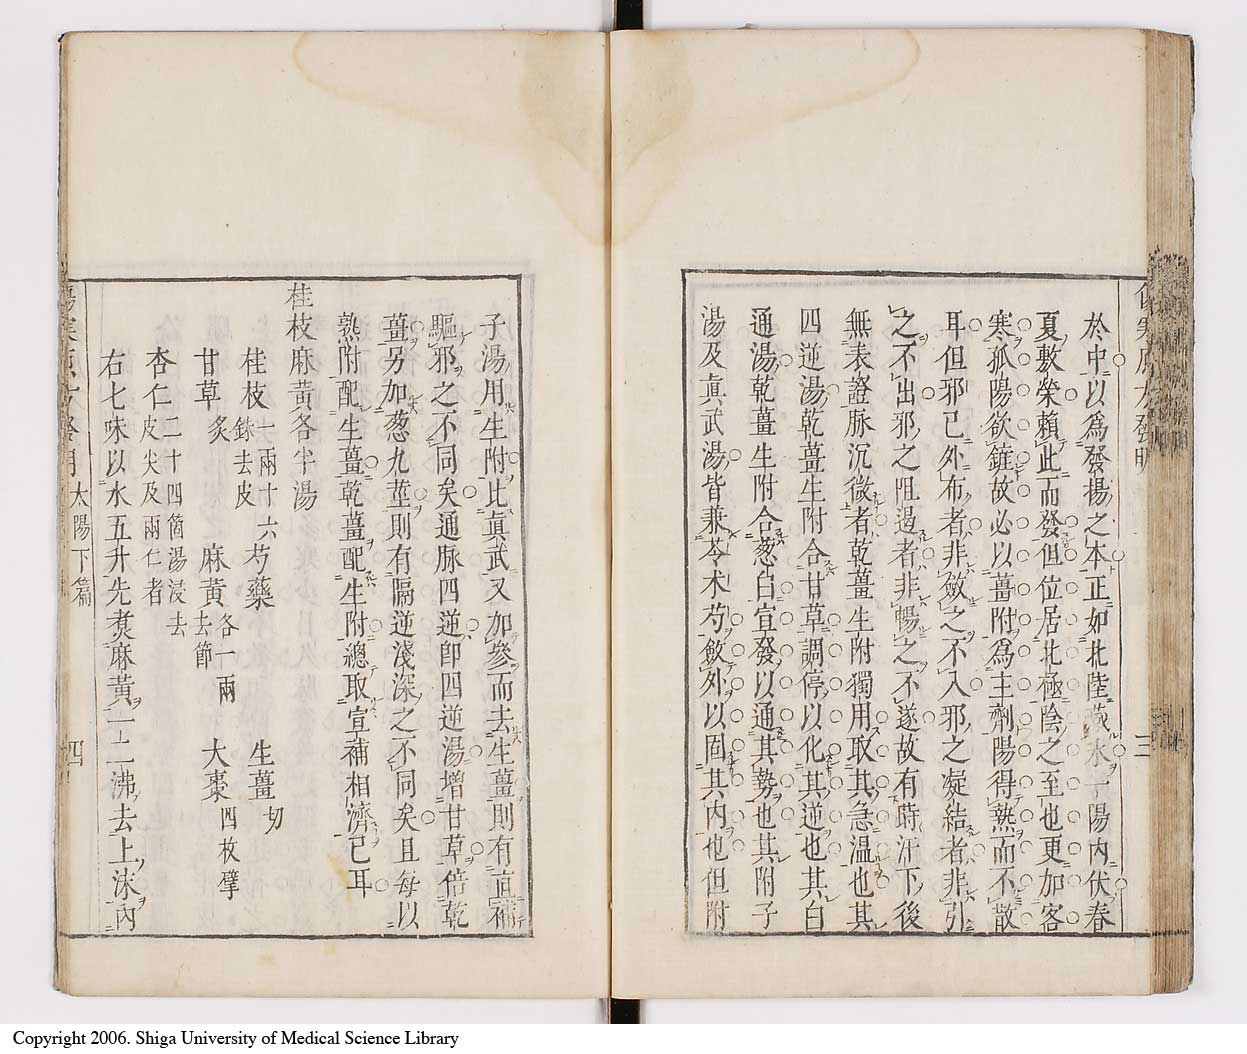 於中以爲發揚之本正如北陸藏水一陽內伏春
夏敷榮賴此而發但位居北極陰之至也更加客
寒孤陽欲鏟故必以薑附爲主劑陽得熟而不散
耳但邪已外布者非斂之不入邪之凝結者非引
之不出邪之阻遏者非暢之不遂故有時汗下後
無表證脉沉微者乾薑生附獨用取其急温也其
四逆湯乾薑生附合甘草調停以化其逆也其白
通湯乾薑生附合葱白宣發以通其勢也其附子
湯及眞武湯皆兼苓术芍斂外以固其內也但附
三
子湯用生附比眞武又加參而去生薑則有宜補
驅邪之不同矣通脉四逆卽四逆湯增甘草倍乾
薑另加葱九莖則有隔逆淺深之不同矣且每以
熟附配生薑乾薑配生附總取宣補相濟已耳
桂枝麻黃各半湯
桂枝一兩十六銖去皮 芍藥 生薑切
甘草炙 麻黃各一兩去節 大棗四枚擘
杏仁二十四箇湯浸去皮尖及兩仁者
右七味以水五升先煑麻黃一二沸去上沫內
太陽下篇
四
Copyright 2006. Shiga University of Medical Science Library